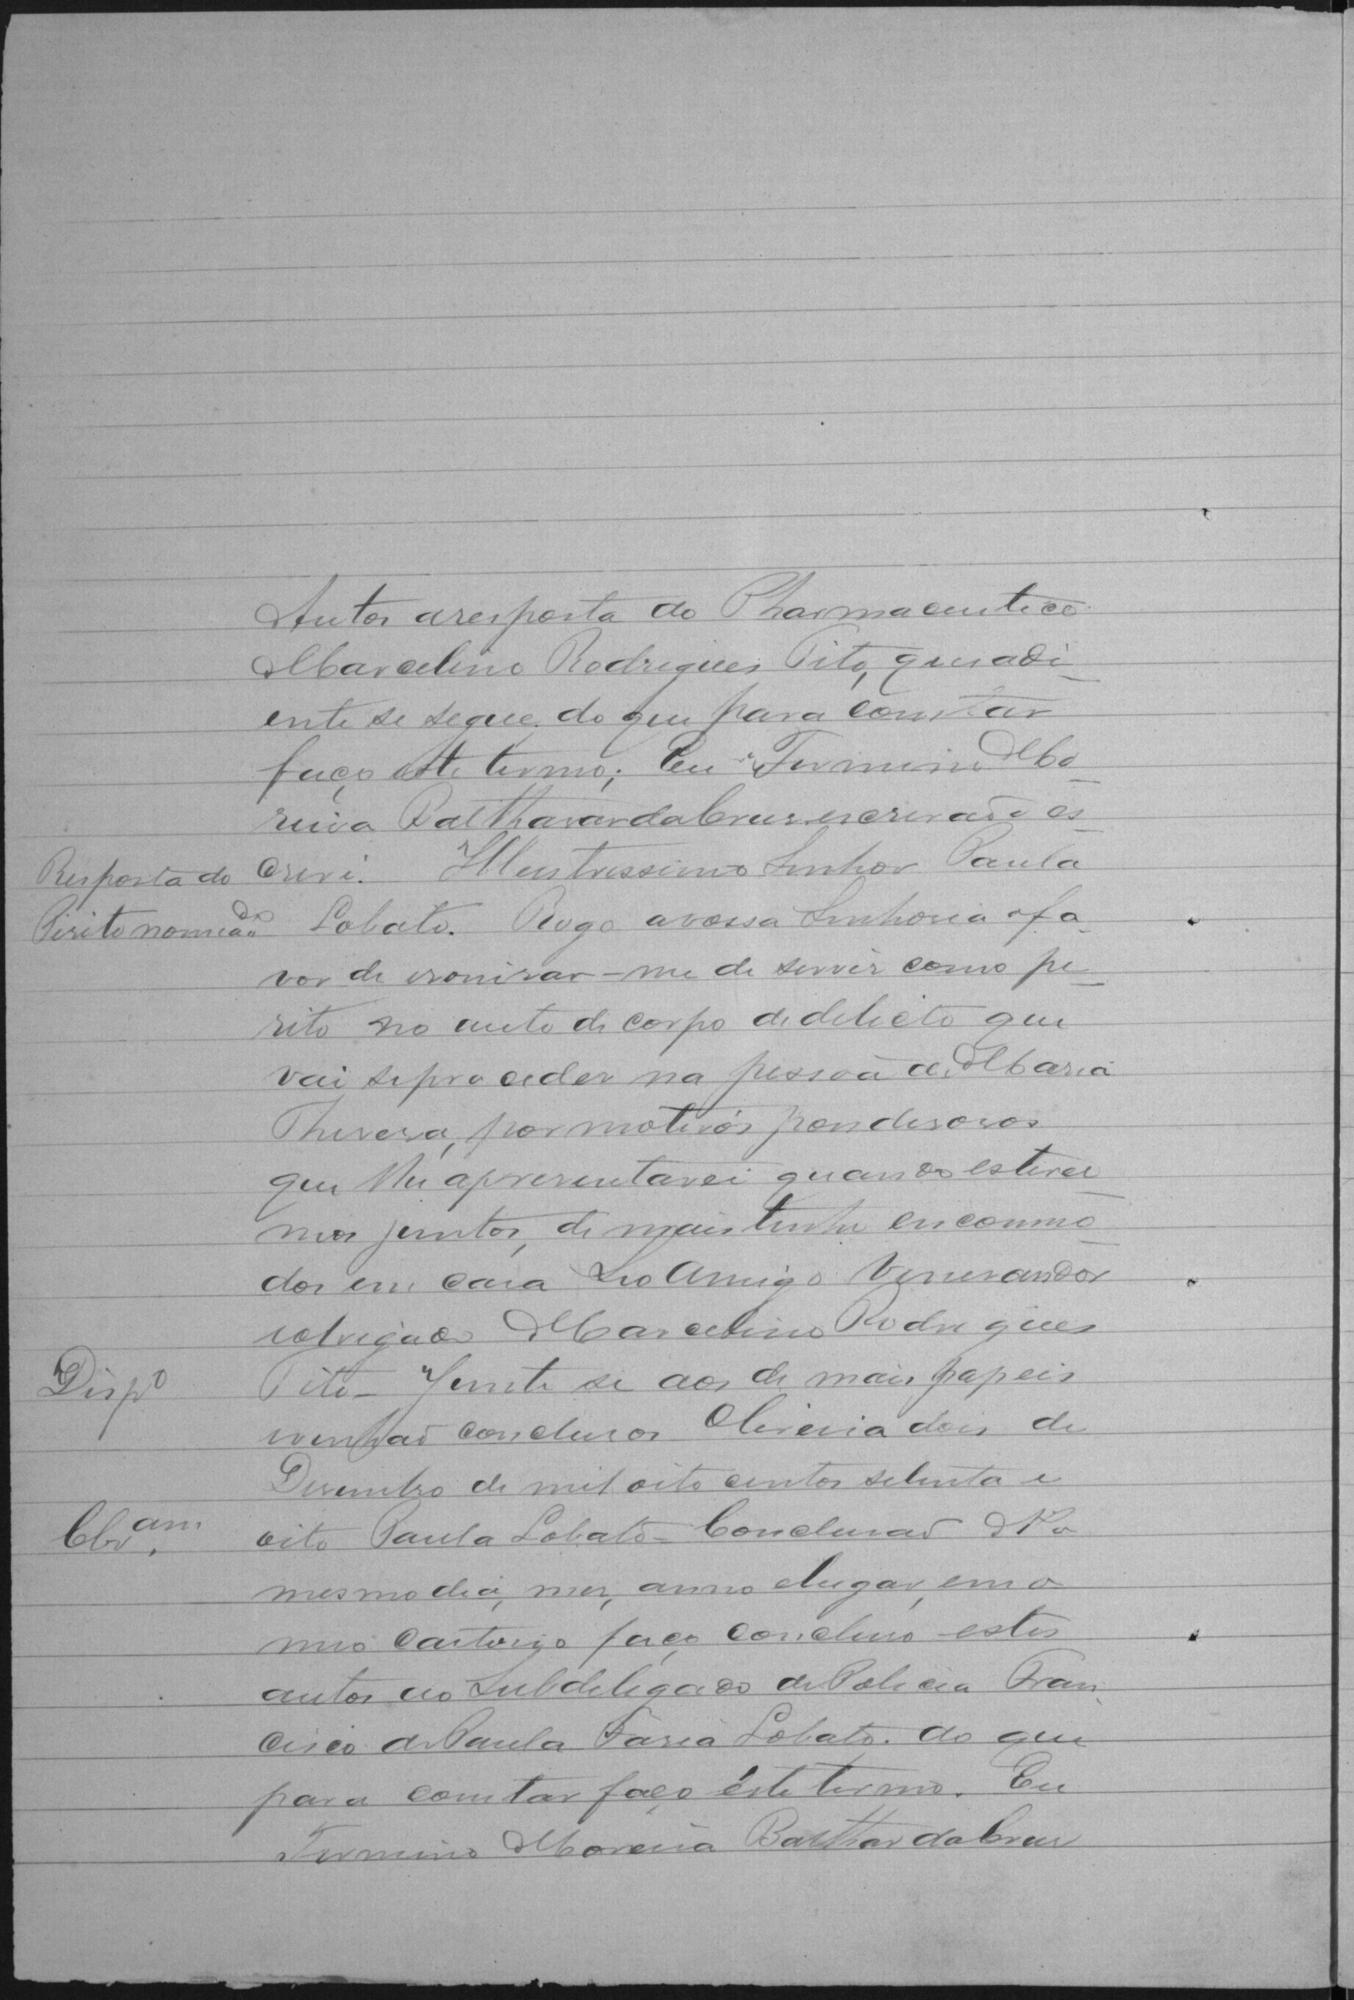 Autos a resposta do Pharmaceutico
Marcelino Rodrigues Tito, que adi-
ente se segue. do que para constar
faço este termo; Eu Firmino Mo-
reira Balthazar da Cruz escrivão es-
Resposta do crevi. Illustrissimo Senhor Paula
Pirito nomeado Lobato. Rogo a vossa Senhoria o fa-
vor de exonirar-me de servir como pe-
rito no auto de corpo de delicto que
vai se proceder na pessoa de Maria
Thereza, por motivos ponderosos
que lhe apresentarei quando estiver-
mos juntos, de mais tenho encommo-
dos em casa Seo Amigo Venerandor
eobrigado Marcelino Rodrigues
Disp.o Tito - Junte se aos de mais papeis
evenhão conclusos Oliveira dois de
Dezembro de mil oito centos setenta e
Cls.am oito Paula Lobato - Conclusão No
mesmo dia, mez, anno elugar, em o
meo cartorio faço concluso estes
autos ao Subdelegado de Policia Fran-
cisco de Paula Faria Lobato. do que
para constar faço este termo. Eu
Firmino Moreira Balthar da Cruz